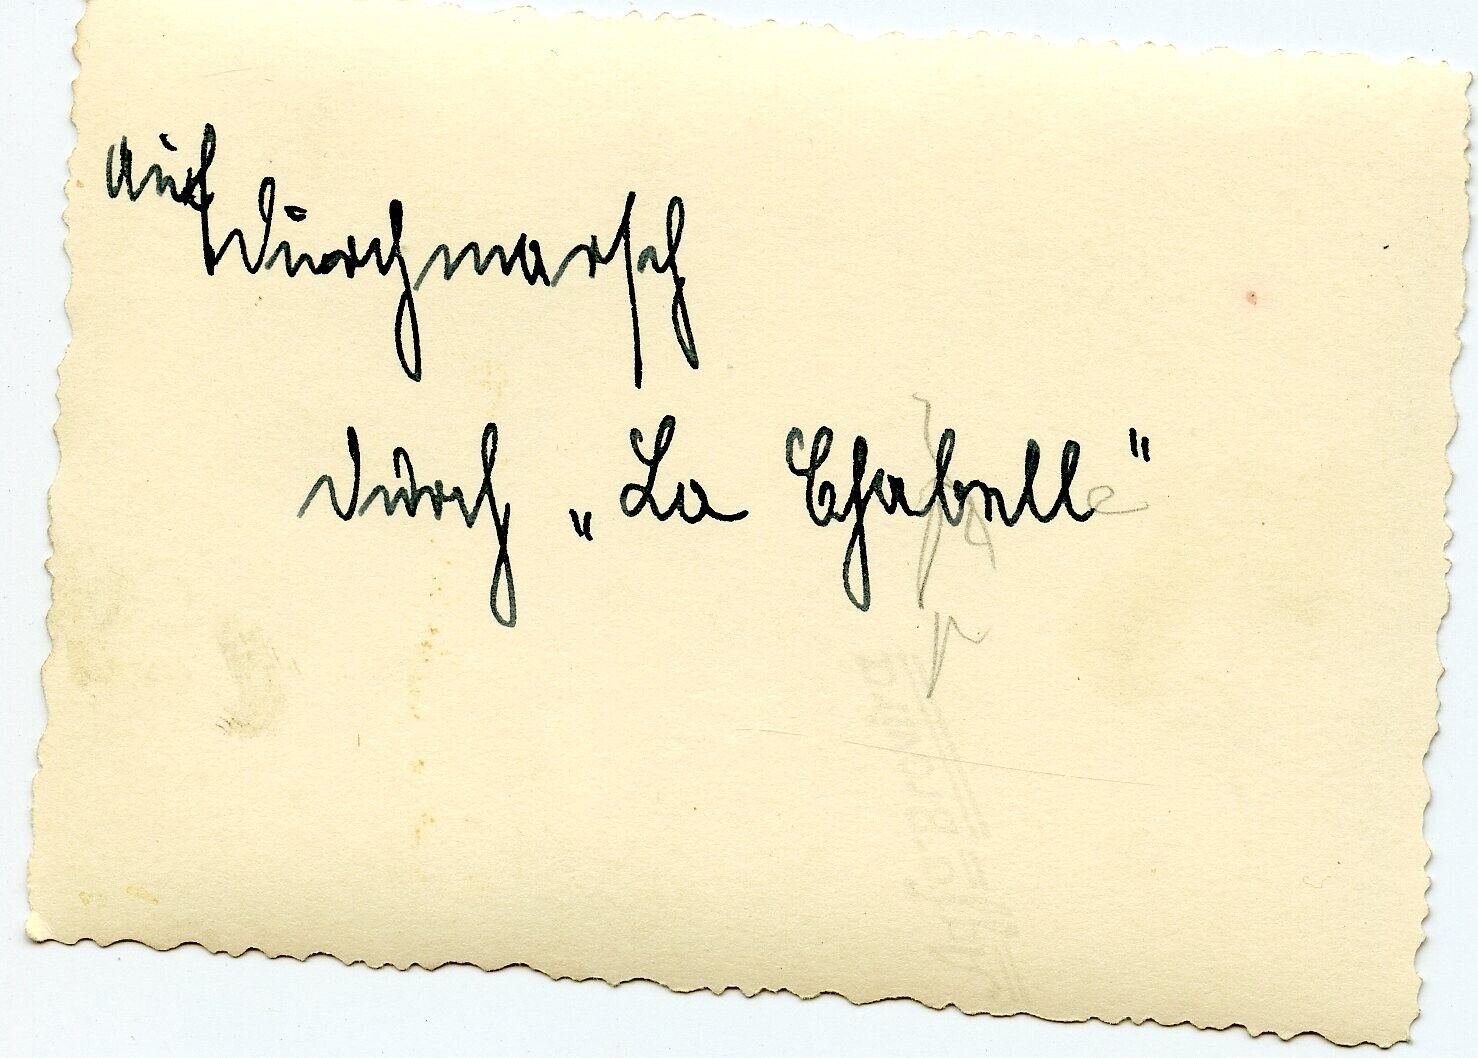 Auf Durchmarsch
durch „La Chabelle"